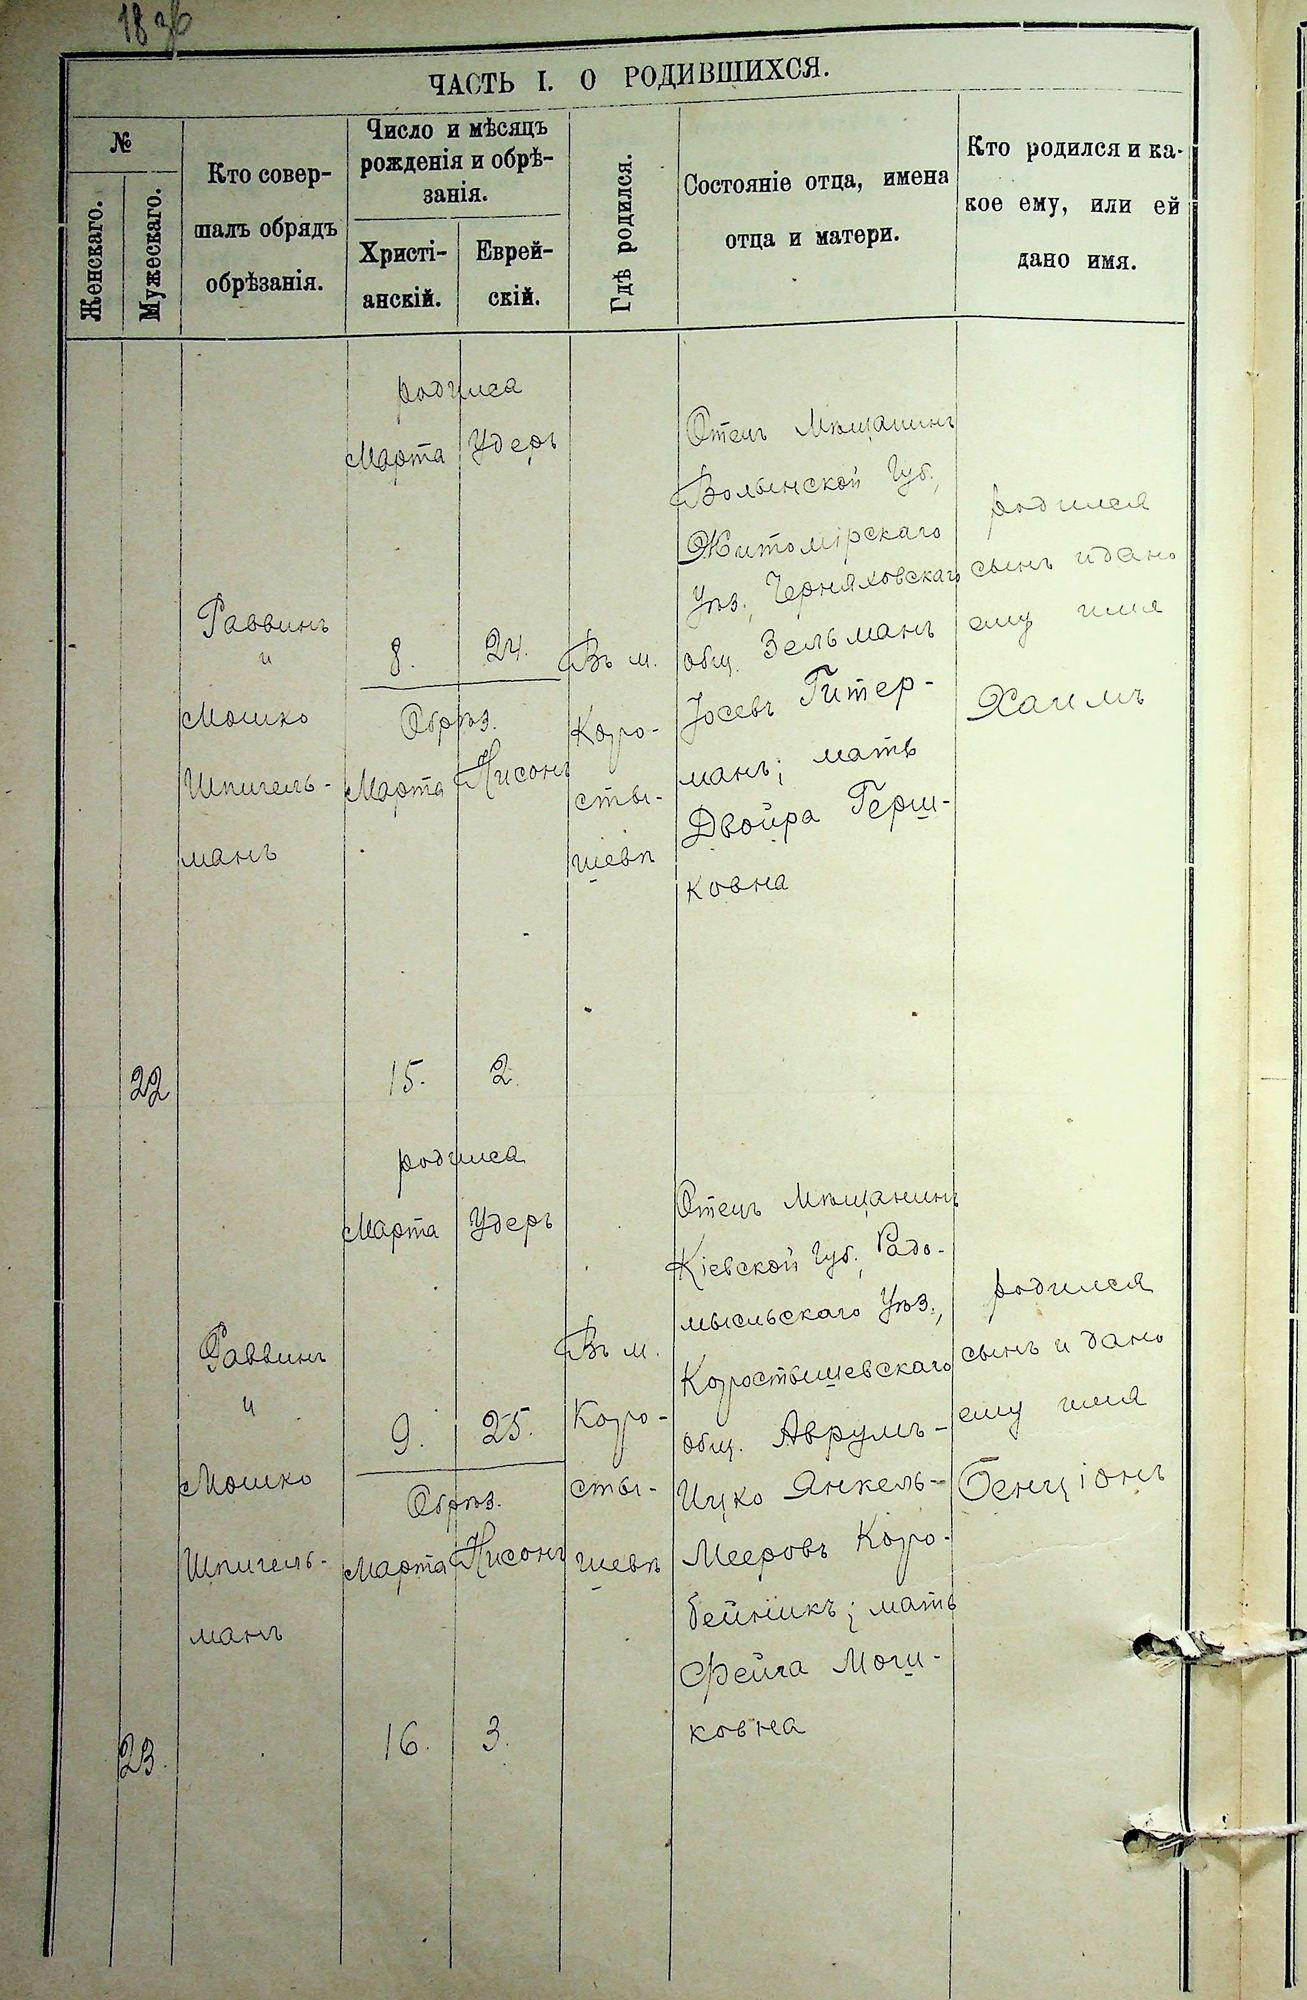 1836
ЧАСТЬ I. О РОДИВШИХСЯ.
№
Женскаго.
Мужескаго.
Кто совер-
шалъ обрядъ
обрѣзанія.
Число и мѣсяцъ
рожденія и обрѣ-
занія.
Христі-
анскій.
Еврей-
скій.
Гдѣ родился.
Состояніе отца, имена
отца и матери.
Кто родился и ка-
кое ему, или ей
дано имя.
22
Раввинъ
и
Мошко
Шпигель-
манъ
родилса
Марта Удеръ
8. 24.
Обрѣз.
Марта Нисонъ
15. 2
Въ м.
Коро-
сты-
шевѣ
Отецъ Мѣщанинъ
Волынской Губ.,
Житомірскаго
Уѣз., Черняховскаго
общ. Зельманъ
Іосевъ Гитер-
манъ; мать
Двойра Герш-
ковна
родился
сынъ и дано
ему имя
Хаимъ
23.
Раввинъ
и
Мошко
Шпигель-
манъ
родилса
Марта Удеръ
9. 25.
Обрѣз.
Марта Нисонъ
16. 3.
Въ м.
Коро-
сты-
шевѣ
Отецъ Мѣщанинъ
Кіевской Губ., Радо-
мысльскаго Уѣз.,
Коростышевскаго
общ. Аврумъ-
Ицко Янкель-
Мееровъ Коро-
бейникъ; мать
Фейга Мош-
ковна
родился
сынъ и дано
ему имя
Бенціонъ